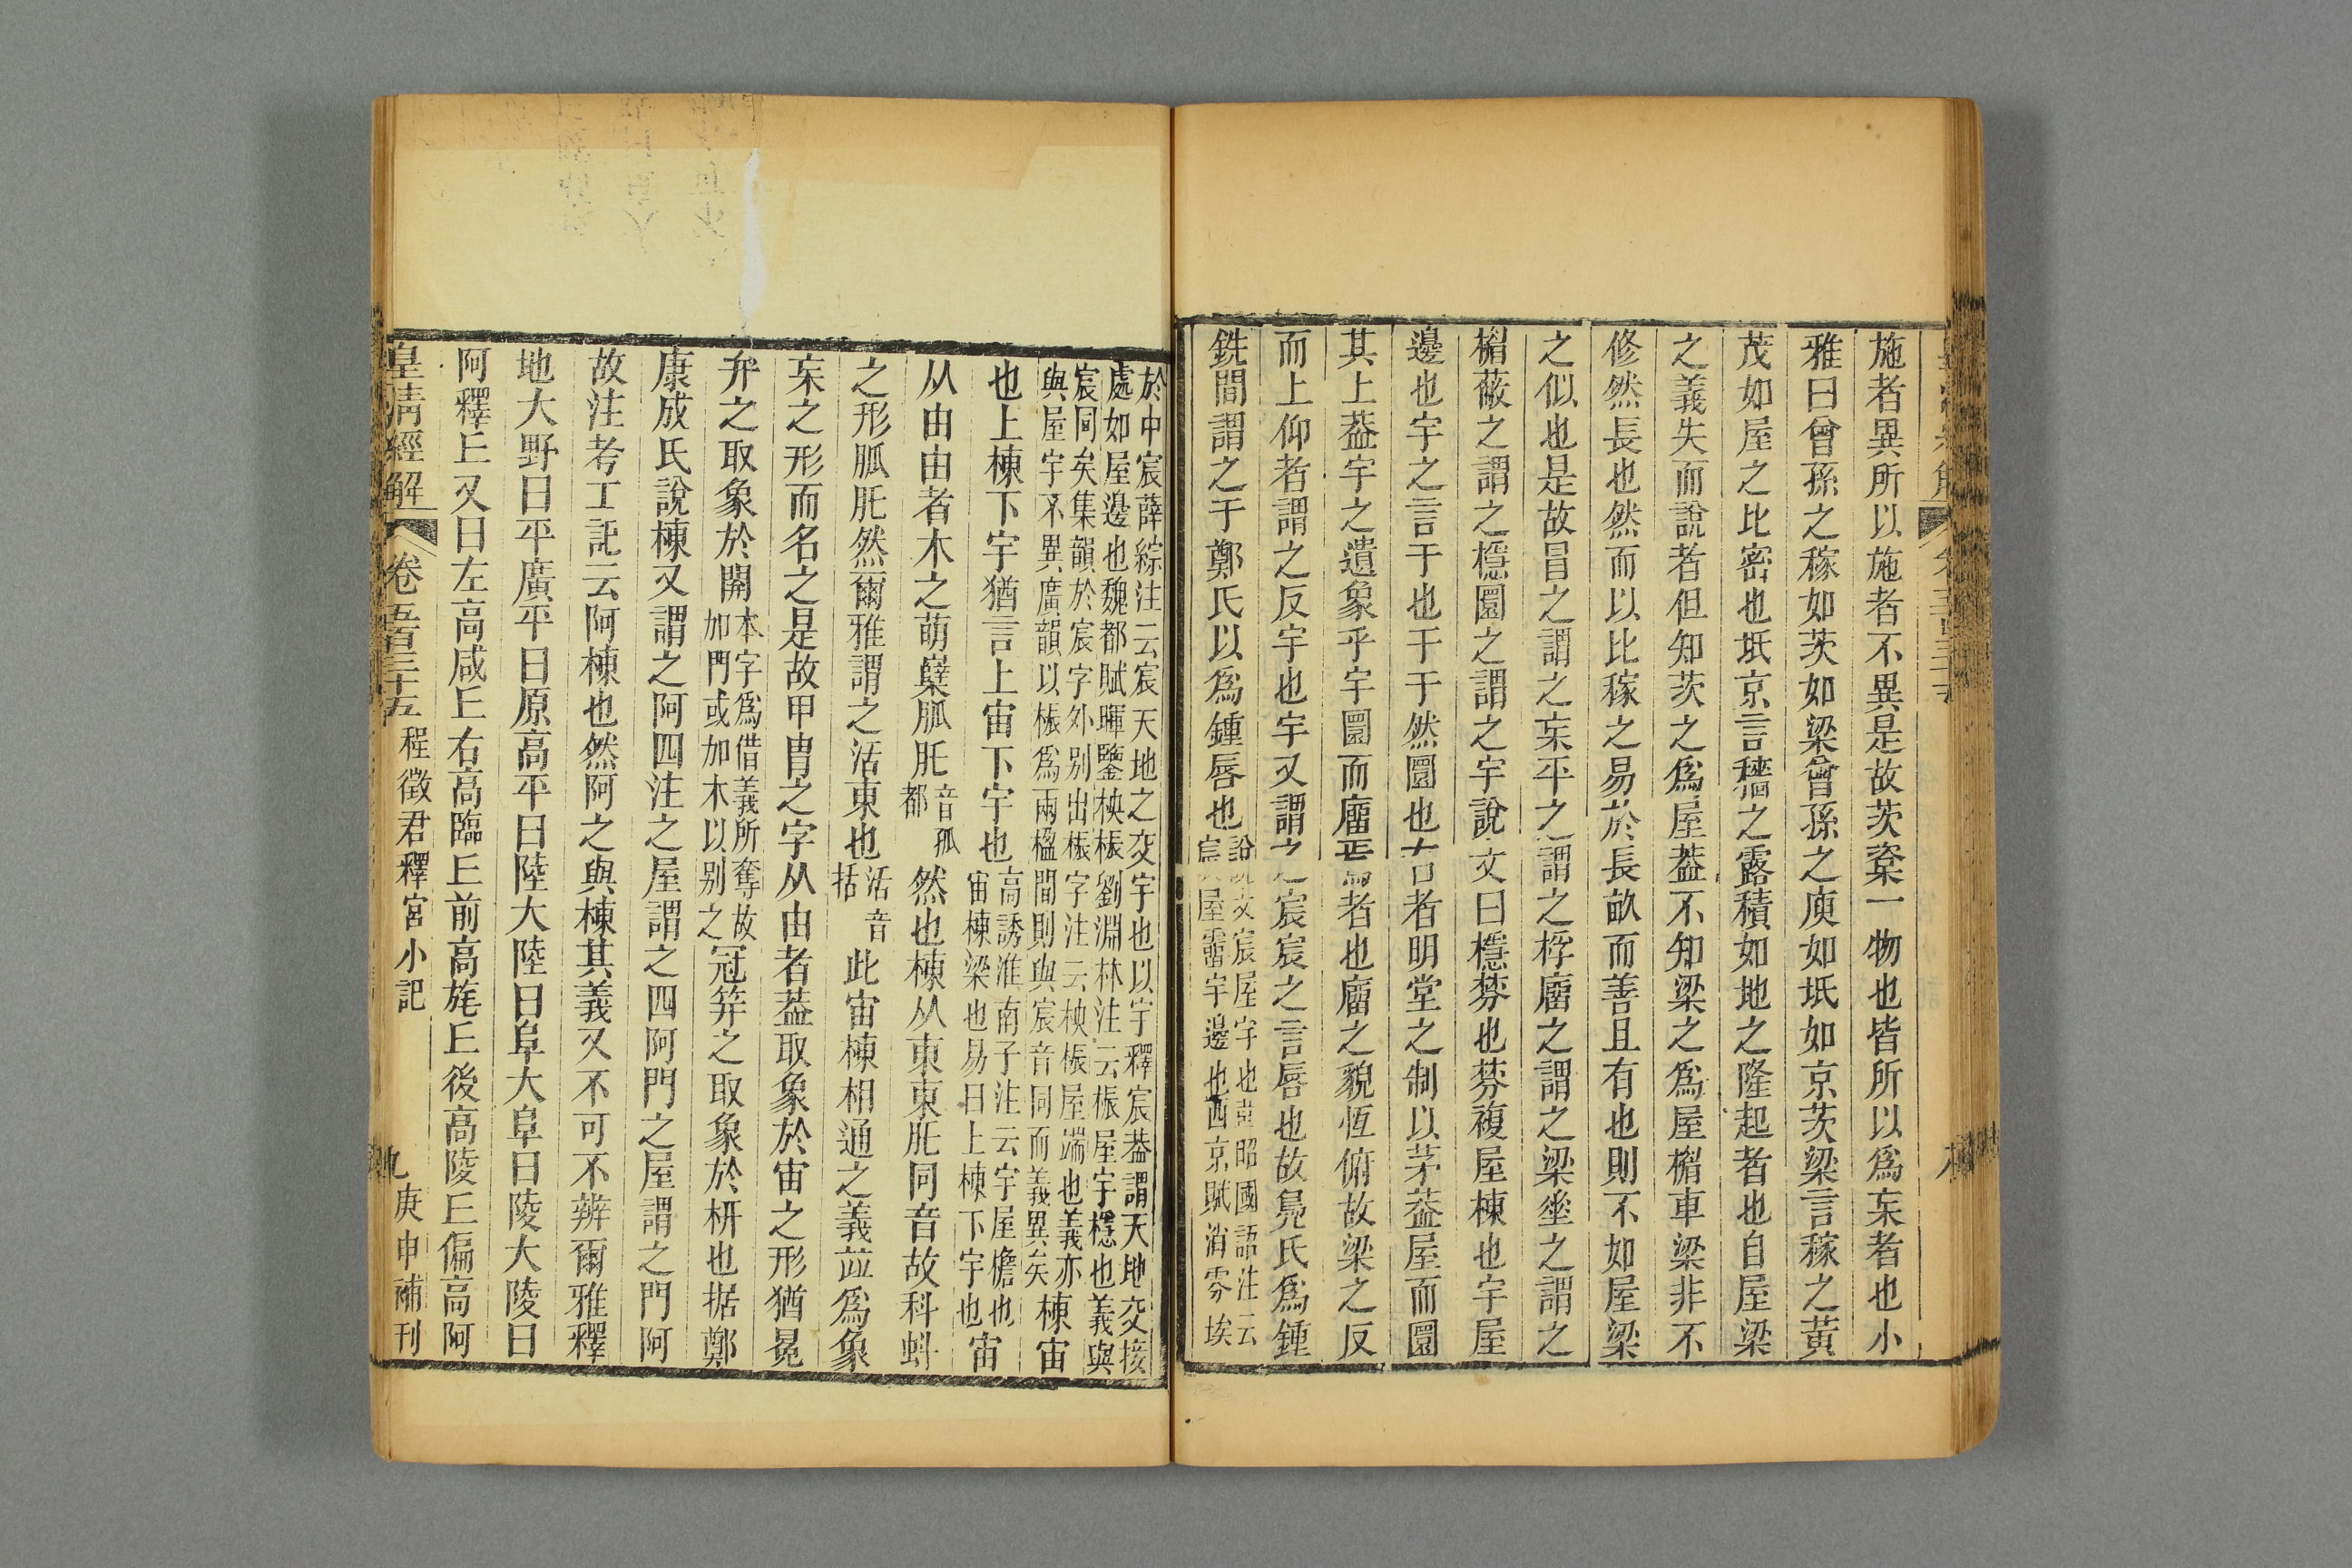 施者異所以施者不異是故茨楶一物也皆所以爲宎者也小
雅曰曾孫之稼如茨如梁曾孫之庾如坻如京茨梁言稼之黃
茂如屋之比密也坻京言穡之露積如地之隆起者也自屋梁
之義失而說者但知茨之爲屋葢不知梁之爲屋楣車梁非不
修然長也然而以比稼之易於長畝而善且有也則不如屋梁
之似也是故冒之謂之宎平之謂之桴廇之謂之梁垂之謂之
楣蔽之謂之檼圜之謂之宇說文曰檼棼也棼複屋棟也宇屋
邊也宇之言于也于于然圜也古者明堂之制以茅葢屋而圜
其上葢宇之遺象乎宇圜而廇者也廇之貌恆俯故梁之反
而上仰者謂之反宇也宇又謂之宸宸之言唇也故鳧氏爲鍾
銑間謂之于鄭氏以爲鍾唇也
說文宸屋宇也韋昭國語注云
宸屋霤宇邊也西京賦消雰埃
於中宸薛綜注云宸天地之交宇也以宇釋宸葢謂天地交接
處如屋邊也魏都賦暉鑒柍桭劉淵林注云桭屋宇檼也義與
宸同矣集韻於宸字外別出桭字注云柍桭屋端也義亦
與屋宇不異廣韻以桭爲兩楹間則與宸音同而義異矣
棟宙
也上棟下宇猶言上宙下宇也
高誘淮南子注云宇屋檐也
宙棟梁也易曰上棟下宇也
宙
从由由者木之萌櫱胍肛
音孤
都
然也棟从東東肛同音故科蚪
之形胍肛然爾雅謂之活東也
活音
括
此宙棟相通之義竝爲象
宎之形而名之是故甲冑之字从由者葢取象於宙之形猶冕
弁之取象於開
本字爲借義所奪故
加門或加木以别之
冠笄之取象於枅也据鄭
康成氏說棟又謂之阿四注之屋謂之四阿門之屋謂之門阿
故注考工記云阿棟也然阿之與棟其義又不可不辨爾雅釋
地大野曰平廣平曰原高平曰陸大陸曰阜大阜曰陵大陵曰
阿釋丘又曰左高咸丘右高臨丘前高旄丘後高陵丘偏高阿
皇清經解 卷五百三十五 程徵君釋宮小記 九 庚申補刊